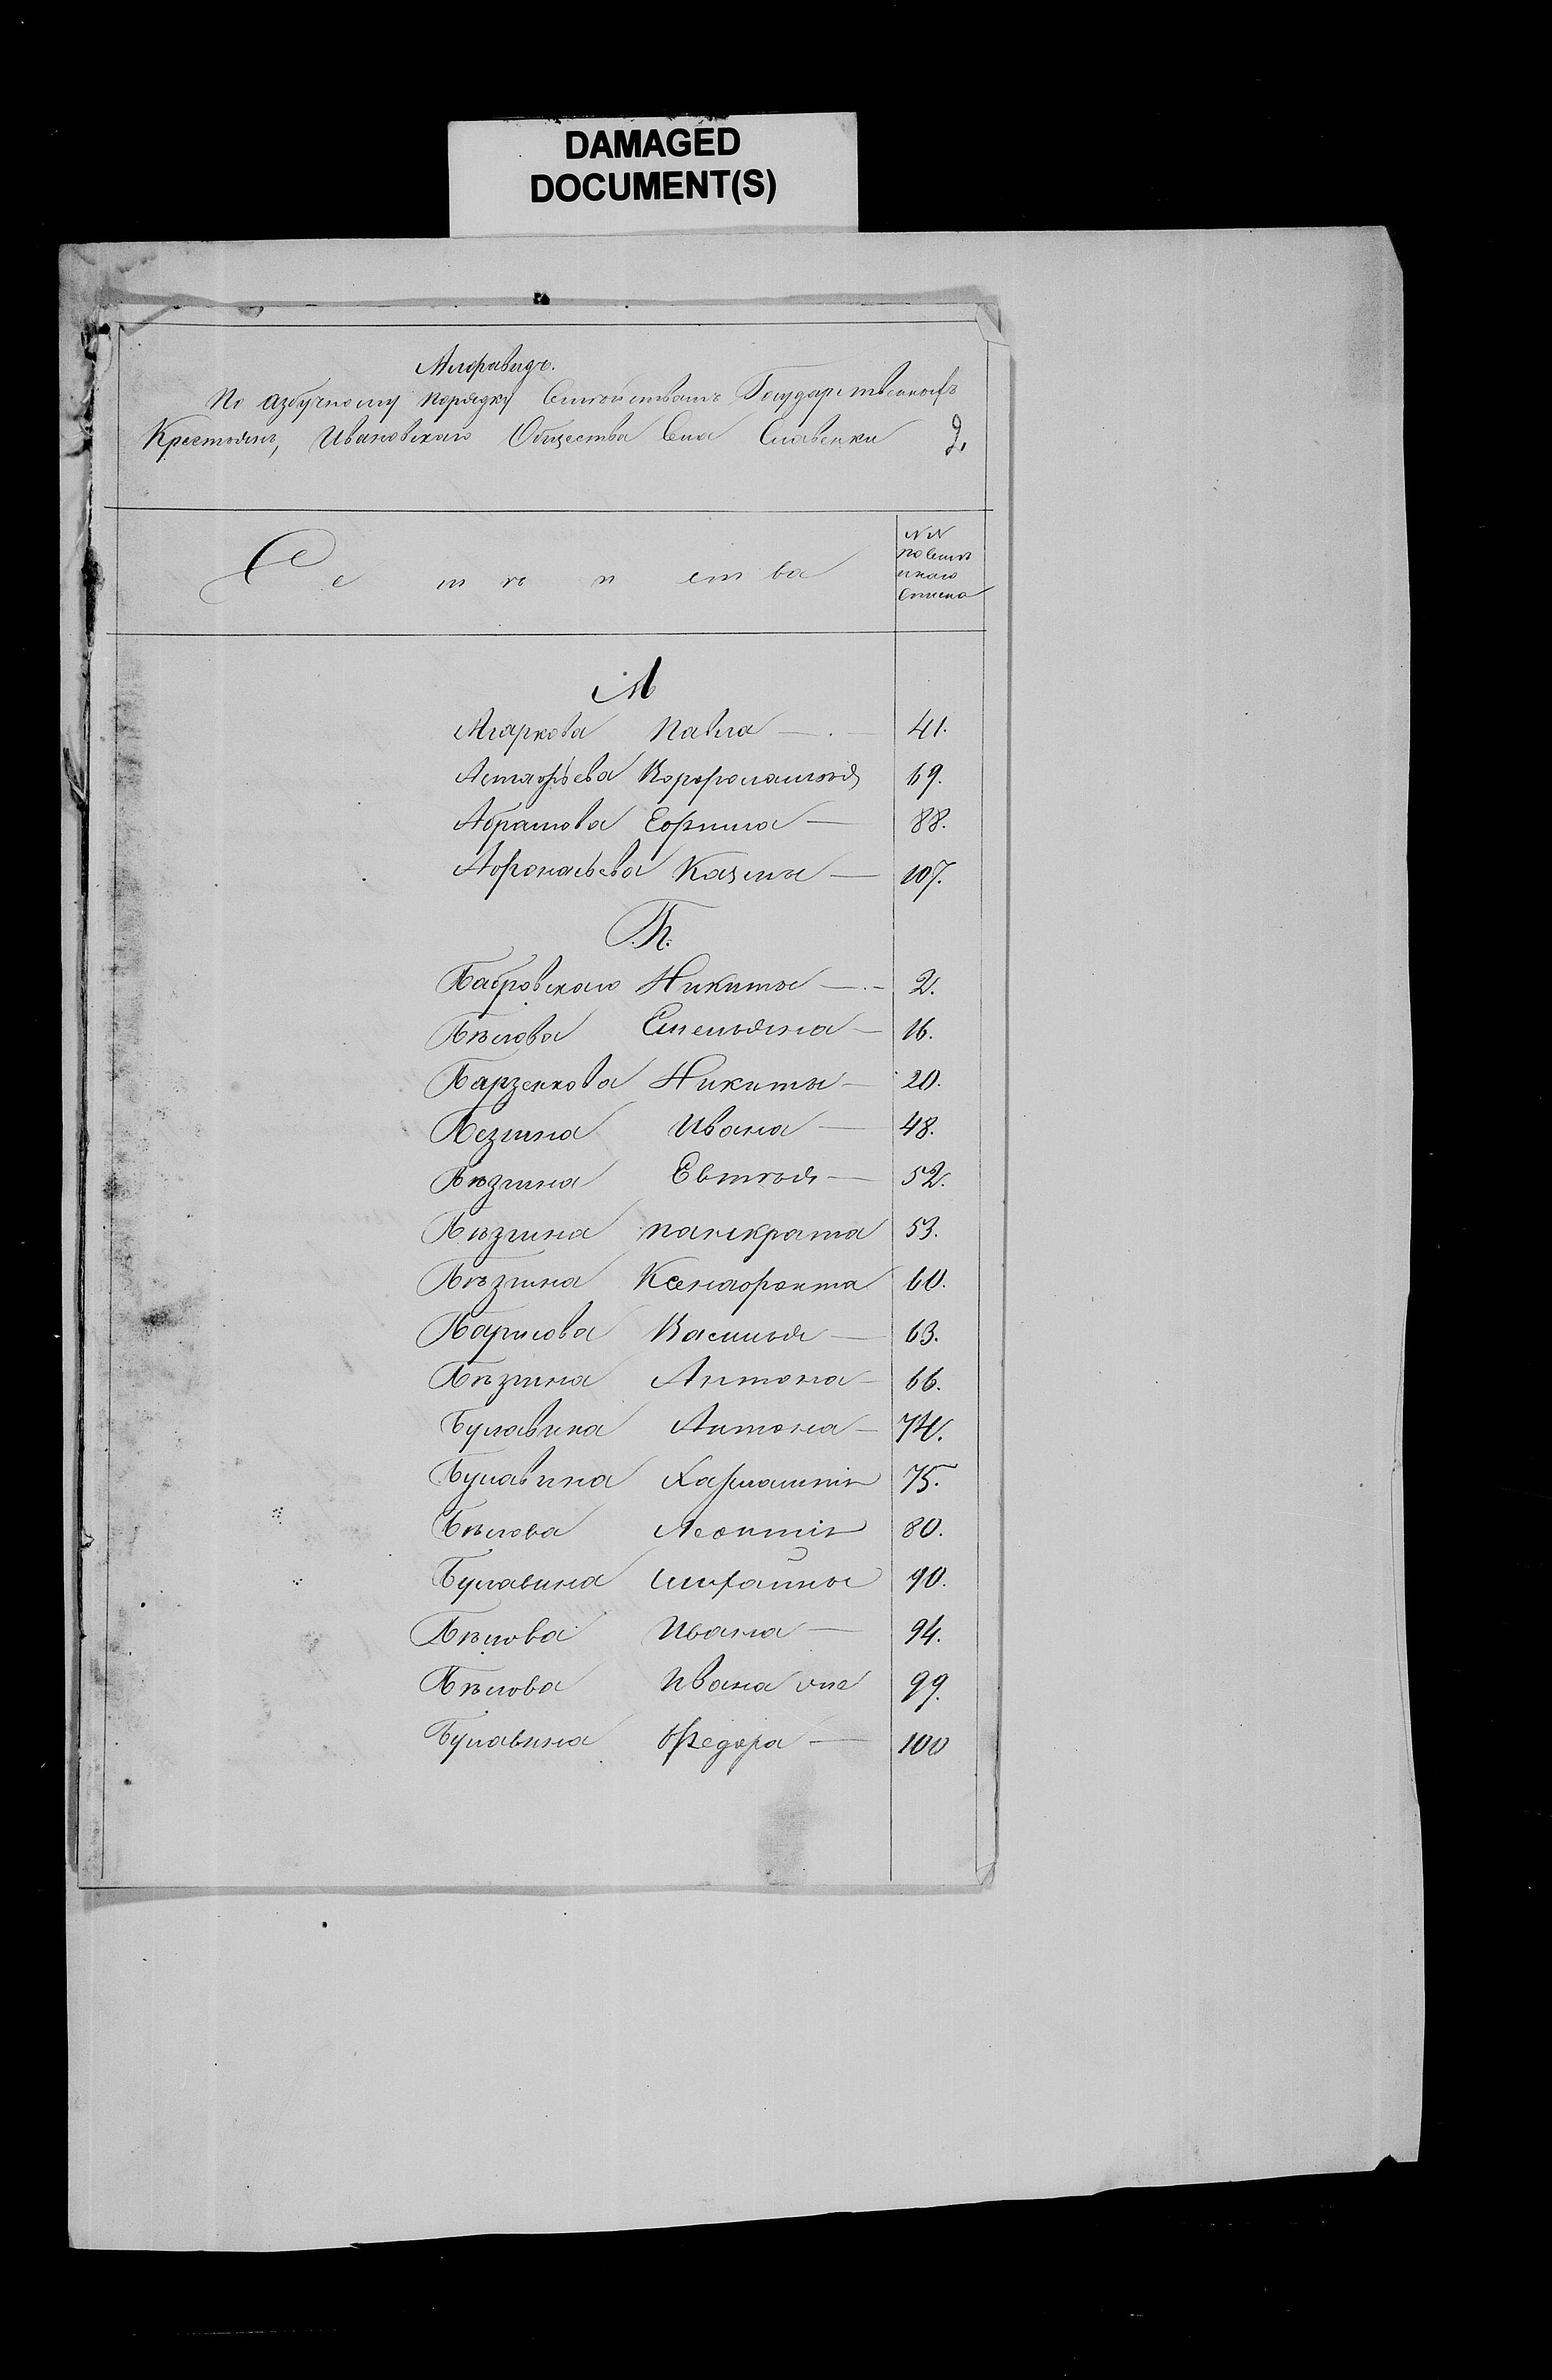 DAMAGED
DOCUMENT(S)
Алфавидъ.
По азбучному порядку Семействамъ Государственныхъ
Крестьянъ, Ивановскаго Общества Села Славенки 2,
Семейства
NN
по Семей
ному
списка
А
Маркова Павла 41.
Астафьева Варфоломея 69.
Абрамова Ефима 88.
Афонасьева Казмы 107.
Б.
Бабровскаго Никиты 2.
Бѣлова Емельяна 16.
Барзенкова Никиты 20.
Безгина Ивана 48.
Бѣзгина Евтея 52.
Бѣзгина панкрата 53.
Бѣзгина Ксенафонта 60.
Барисова Василья 63.
Бѣзгина Антона 66.
Булавина Антона 74.
Булавина Харлампия 75.
Бѣлова Леонтія 80.
Булавина михайлы 90.
Бѣлова Ивана 94.
Бѣлова Ивана 99.
Булавина Федора 100